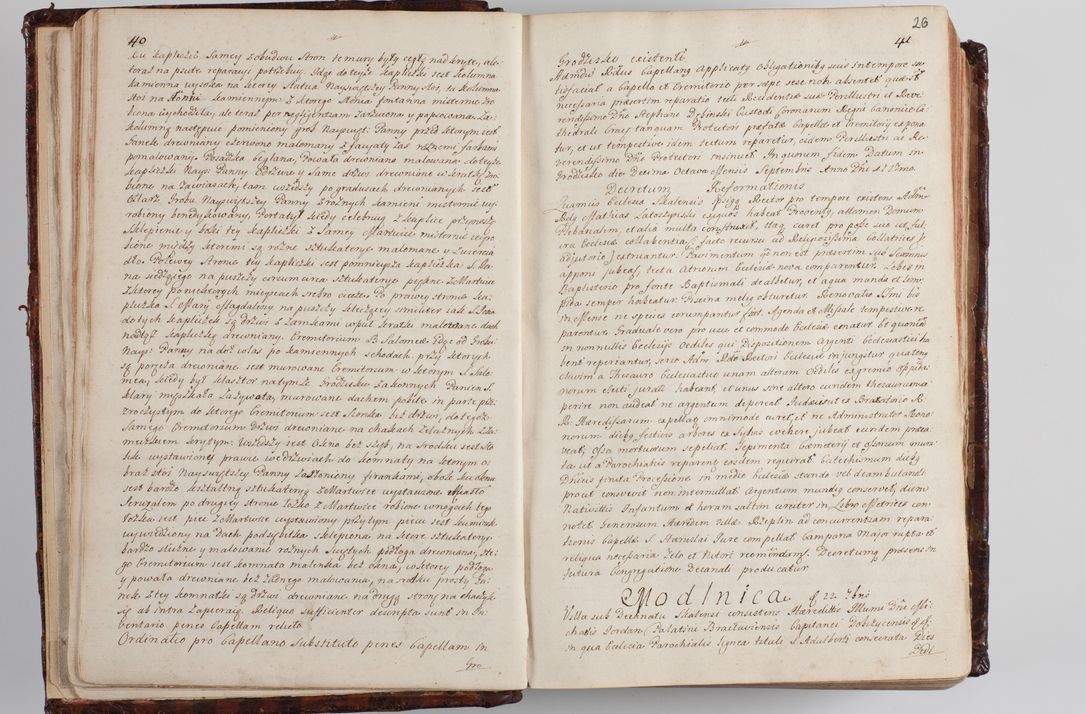 40
Tu kapliczki samey z obudwu stron te mury były cegłą nadkryte, ale
teraz na psute reparacyi potrzebuią. Idąc do teyże kapliczki jest kolumna
kamienna wysoka na ktorey statua Nayswiętszey Panny stoi, ta kolumna
stoi na słoniu kamiennym z ktorego słonia fontanna misternie zro
biona wychodziła, ale teraz per negligentiam zarzucona y popsowana. Za
kolumną następuie pomieniony grob Nayswięt: Panny przed ktorym jest
Ganek drewniany czerwono malowany z facyaty zas roznemi farbami
pomalowany. Posadzka ceglana, Powała drewniana malowana do teyże
kapliczki Nays: Panny. Odrzwie y same drzwi drewniane w kratkę zro
bione na zawiasach, tam wszedszy po gradusach drewnianych jest
Ołtarz Grobu Nayswiętszy Panny z roznych kamieni misternie wy
robiony benedykowany, Portatyl kiedy celebruią z kaplice przynoszą
Sklepienie y boki tey kapliczki z samey Martwice misternie wyro
bione między ktoremi są rożne sztukaterye malowane y zwiercia
dło. Po lewey stronie tey kapliczki jest pomnieysza kapliczka S. Ja
na siedzącego na puszczy circumcirca sztukaterye piękne z Martwice
z ktorey po niektorych mieyscach srebro ciecze, Po prawey stronie ka
pliczka S. Mary Magdaleny na puszczy klęczącey similiter iak S. Jana
do tych kapliczek są drzwi z zamkami wpuł kratki malowane dach
nad tąż kapliczką drewniany. Eremitorium B. Salomei. Idąc od Grobu
Nays: Panny na doł zołas po kamiennych schodach przy ktorych
są poręcza drewniane jest murowane Eremitorium w ktorym S. Salo
mea, kiedy był klasztor na tymże Grodzisku Zakonnych Panien S.
Klary mieszkała zażywała, murowane dachem pobite in parte prze
zroczystym do ktorego Eremitorium jest sionka bez drzwi, do tegoż
samego Eremitorium drzwi drewniane na chaakach żelaznych z za
meczkiem krytym. Wszedszy jest okno bez szyb, na srodku jest sto
lik wystawiony prawie we drzwiach do komnaty na ktorym o
braz stoi Nayswiętszy Panny zasłoniony firankami, obok studnia
jest bardzo kształtną sztukateryą z Martwice wystawione miasto
Jeruzalem po drugiey stronie Łożko z Martwice robione wnogach tego
łożka jest piec z Martwice wystawiony przy tym piecu jest kominek
wywiedziony na dach podsiębitka sklepiona na ktore sztukaterye
bardzo sliczne y malowanie rożnych Swiętych podłoga drewniana, Ste
go Eremitorium jest komnata malenka bez okna, w ktorey podłoga
y powała drewniane bez żadnego malowania, na srodku prosty sa
nek z tey komnatki są drzwi drewniane na drugą stronę na chaczyk
się ab intra zapieraią. Reliqua sufficienter descripta sunt in In
ventario penes Capellam relicto
Ordinatio pro Capellano substituto penes Capellam in
Gro
26
41
Grodzisko existenti
Admodus Rdus Capellanus applicatus obligationibus suis in tempore sa
tisfaciat a Capella et Eremitorio per saepe sese non absentet quid sit
necessaria praesertim reparatio tecti Residentiae suae Perillustri et Reve
rendissimo Dno Stephano Dębinski Custodi Coronarum Regni Canonico Ca
thedrali Crac: tanquam Protectori praefatae Capellae et Eremitorij expona
tur, et ut tempestive idem tectum reparetur, eidem Perillustri ac Re
verendissimo Dno Protectori insinuet. In quorum fidem Datum in
Grodzisko die Decima Octava Mensis Septembris Anno Dni ut supra
Decretum Reformationis
Quamvis Ecclesia Skalensis ipsiq Rector pro tempore existens Adm
Rdus Mathias Latoszynski exiguos habeat Proventus, attamen Domum
Plebanalem, et alia multa construxit, itaq curet pro posse suo ut sul
cra Ecclesiae collabentia facto recursu ad Religiosissima Collatrices p
adjutorio extruantur. Pavimentum qo non est praesertim sub scamnis
apponi jubeat, tecta atriorum Ecclesiae nova comparentur. Lebes in
Baptisterio pro fonte Baptismali dealbetur, et aqua munda et lim
pida semper habeatur. Piscina melius obturetur. Renovatio SSmi bis
in Mense ne species corrumpantur fiat. Agenda et Missale tempestive re
parentur. Graduale vero pro usu et commodo Ecclesiae ematur. Et quoniam
in nonnullis Ecclesijs Aediles qui Dispositionem Argenti Ecclesiastici ha
bent reperiantur, serio Adm Rdo Rectori Ecclesiae injungitur quatenus
clavim a Thesauro Ecclesiastico unam alteram Aediles ex gremio oppida
norum electi jurati habeant, et unus sine altero eundem thesaurum a
perire non audeat ne argentum depereat. Judaei sicut ex Praelatorio R.
R: Haeredissarum expellant omnimode curet, et ne Administrator Bono
norum dictus fectivo arbores ex sylvis evehere jubeat eundem praca
veat, ossa mortuorum sepeliat. Sepimenta Caemeterij et ossorum muni
ta ut a Parochialis reparent eosdem requirat Catechismum diebus
Dnicis finita Processione in medio Ecclesiae stando vel deambulando
prout convenit non intermittat. Argentum mundius conservet, diem
Nativitatis Infantum et horam saltim circiter in Libro Metrices con
notet. Generosum Haeredem Villae Rzeplin ad concurrentiam repara
tionis Capellae S. Stanislai Jure compellat. Campana Major rupta et
reliqua necessaria zelo et Nitori recomendant. Decretumq praesens in
futura Congregatione Decanali producatur.
Modlnica d. 22. 7bris
Villa sub Decanatu Skalensi consistens Haereditis Illumi Dni Mi
chaelis Jordan, Palatini Braclaviensis Capitanei Dobczycensis &c &c.
in qua Ecclesia Parochialis lignea tituli S. Adalberti consecrata Dies
Dedi